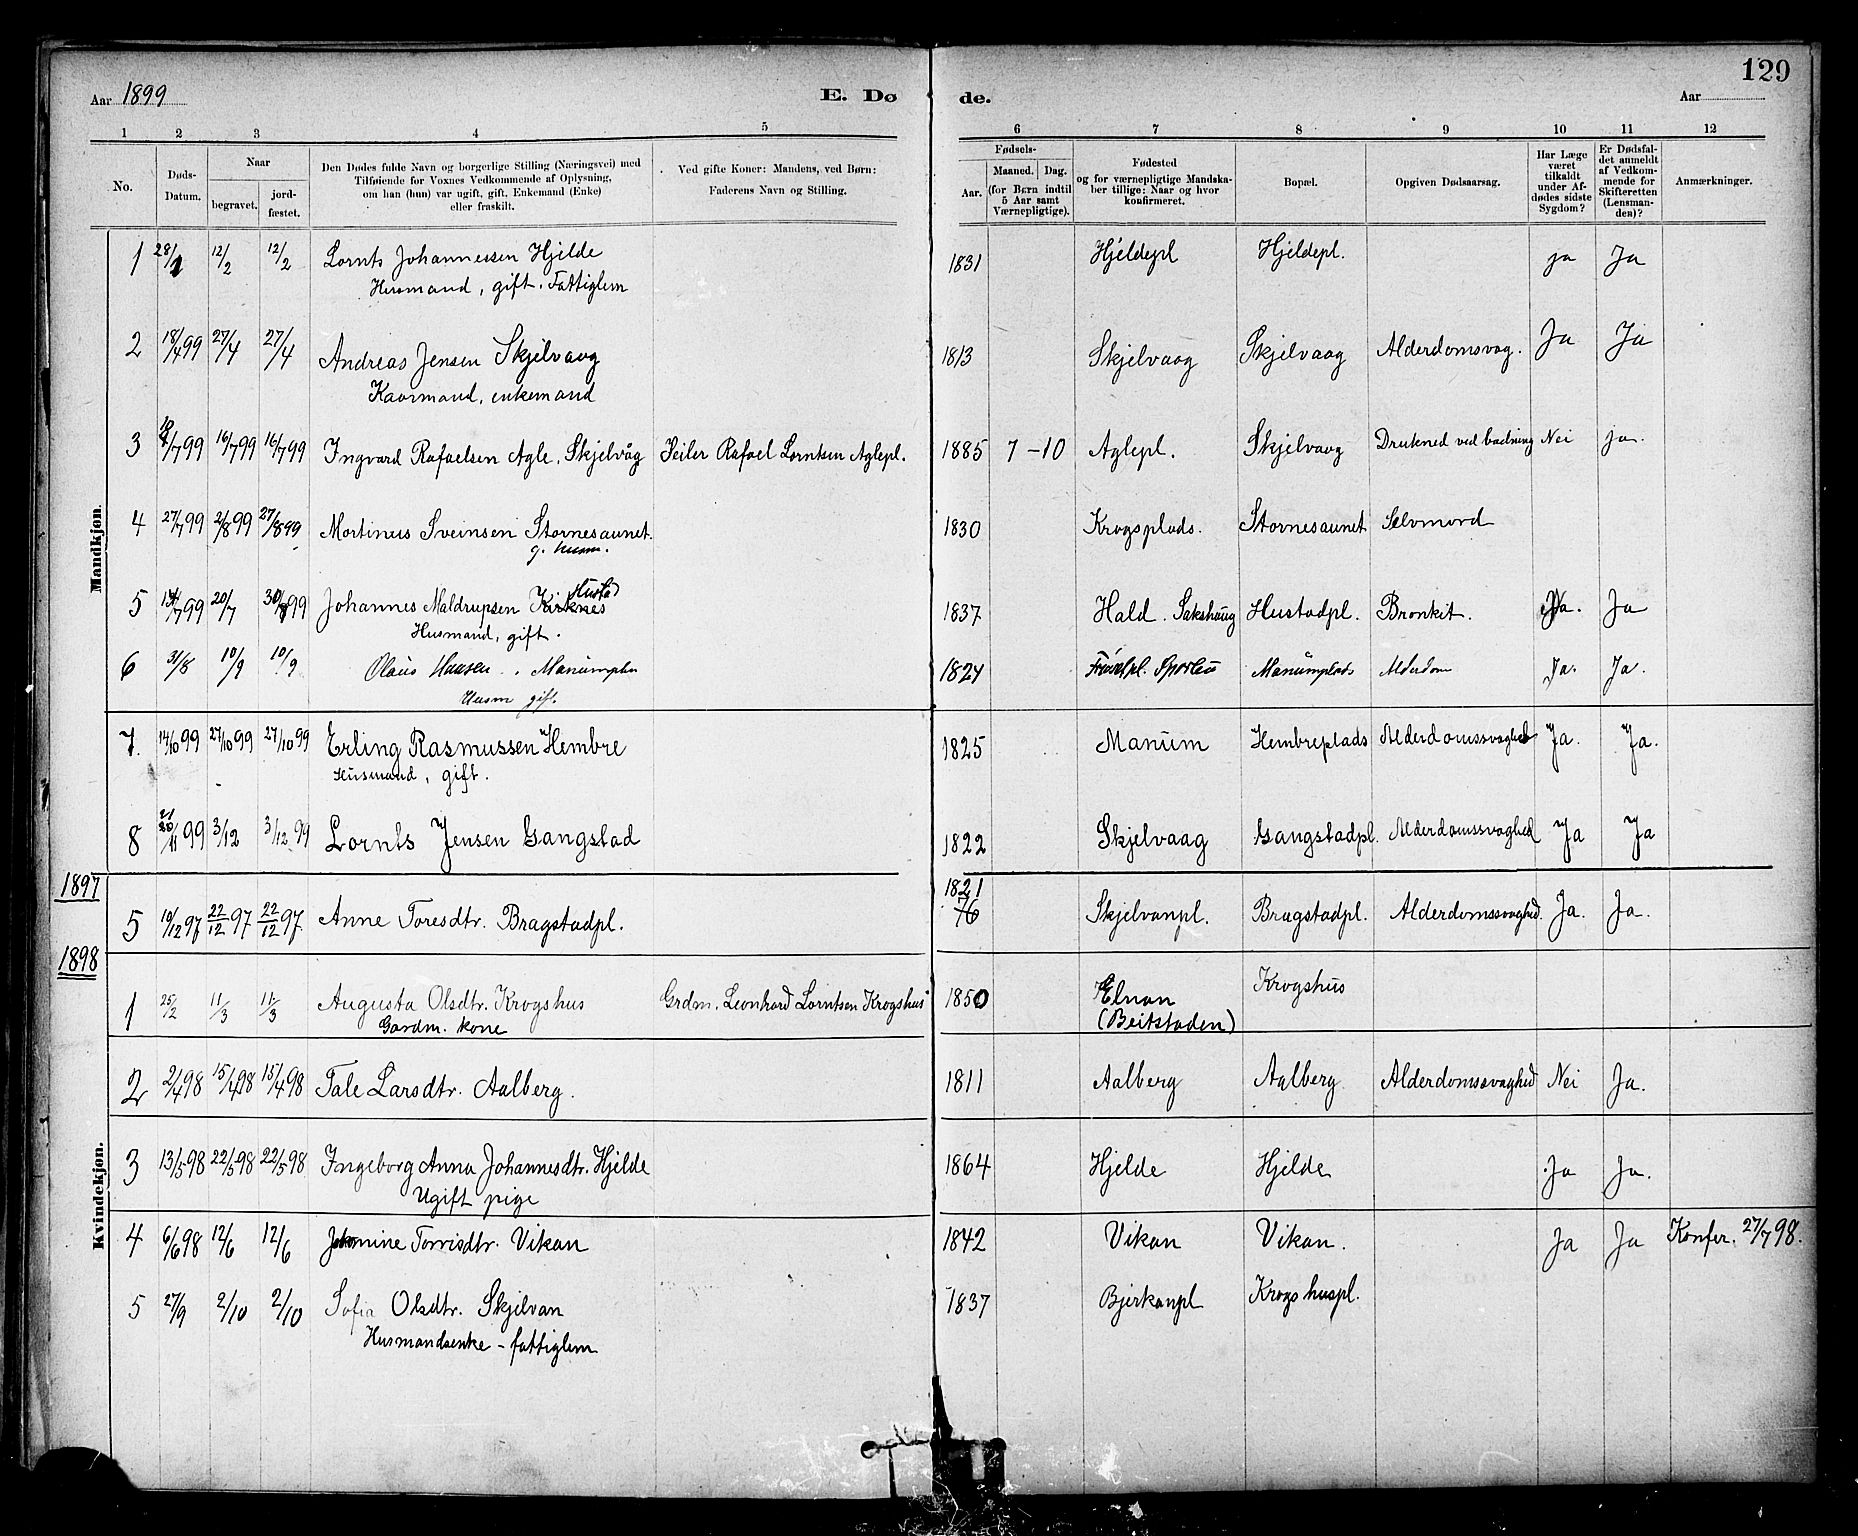 129
Aar 1899 E. Dø de. Aar
1 2 3 4 5 6 7 8 9 10 11 12
No. Døds-Datum. Naar begravet. jord-fæstet. Den Dødes fulde Navn og borgerlige Stilling (Næringsvei) med Tilføiende for Voxnes Vedkommende af Oplysning, om han (hun) var ugift, gift, Enkemand (Enke) eller fraskilt. Ved gifte Koner: Mandens, ved Børn: Faderens Navn og Stilling. Fødsels- Aar. Maaned. Dag. (for Børn indtil 5 Aar samt Værnepligtige). Fødested og for værnepligtige Mandskaber tillige: Naar og hvor konfirmeret. Bopæl. Opgiven Dødsaarsag. Har Læge været tilkaldt under Afdødes sidste Sygdom? Er Dødsfaldet anmeldt af Vedkommende for Skifteretten (Lensmanden)? Anmærkninger.
Mandkjøn.
1 28/1 12/2 12/2 Lornts Johannessen Hjelde 1831 Hjeldepl Hjeldepl. ja Ja
Husmand, gift. Fattiglem
2 18/4 99 27/4 27/4 Andreas Jensen Skjelvaag 1813 Skjelvaag Skjelvaag Alderdomsvag. Ja Ja
Kaarmand, enkemand
3 /7 99 16/7 99 16/7 99 Ingvard Rafaelsen Agle, Skjelvåg Seiler Rafael Lorntsen Aglepl. 1885 7 - 10 Aglepl. Skjelvaag Drukned ved badning Nei ja.
4 27/7 99 2/8 99 27/8 99 Martinus Sveinsen Stornesaunet. 1830 Krogsplads. Stornesaunet Selvmord
g. husm.
Hustad
5 /7 99 20/7 30/8 99 Johannes Maldrupsen Kirknes 1837 Hald. Sakshaug Hustadpl. Bronkit. Ja. Ja
Husmand, gift.
6 31/8 10/9 10/9 Olaus Hansen 1824 Sparbu Manumplads Alderdom Ja. Ja.
Husm gift.
7. 14/10 99 27/10 99 27/10 99 Erling Rasmussen Hembre 1825 Manum Hembreplads Alderdomssvaghed Ja. Ja.
Husmand, gift.
8 /11 99 3/12 3/12 99 Lornts Jensen Gangstad 1822 Skjelvaag Gangstadpl. Alderdomssvaghed Ja Ja
1897
Kvindekjøn.
5 19/12 97 22/12 97 22/12 97 Anne Toresdtr. Bragstadpl. 1821 76 Skjelvanpl. Bragstadpl. Alderdomssvaghed. Ja. Ja.
1898
1 25/2 11/3 11/3 Augusta Olsdtr. Krogshus Grdm. Leonhard Lorntsen Krogshus 1850 Elnan Krogshus
Gardm. kone (Beitstaden)
2 2/4 98 15/4 98 15/4 98 Tale Larsdtr. Aalberg. 1811 Aalberg Aalberg Alderdomssvaghed Nei Ja.
3 13/5 98 22/5 98 22/5 98 Ingeborg Anna Johannesdtr. Hjelde 1864 Hjelde Hjelde Ja Ja.
Ugift pige
4 6/6 98 12/6 12/6 Torrisdtr. Vikan 1842 Vikan Vikan. Ja Ja Konfer. 27/7 98.
5 27/9 2/10 2/10 Sofia Olsdtr. Skjelvan 1837 Bjerkanpl Krogshuspl.
Husmandsenke - fattiglem